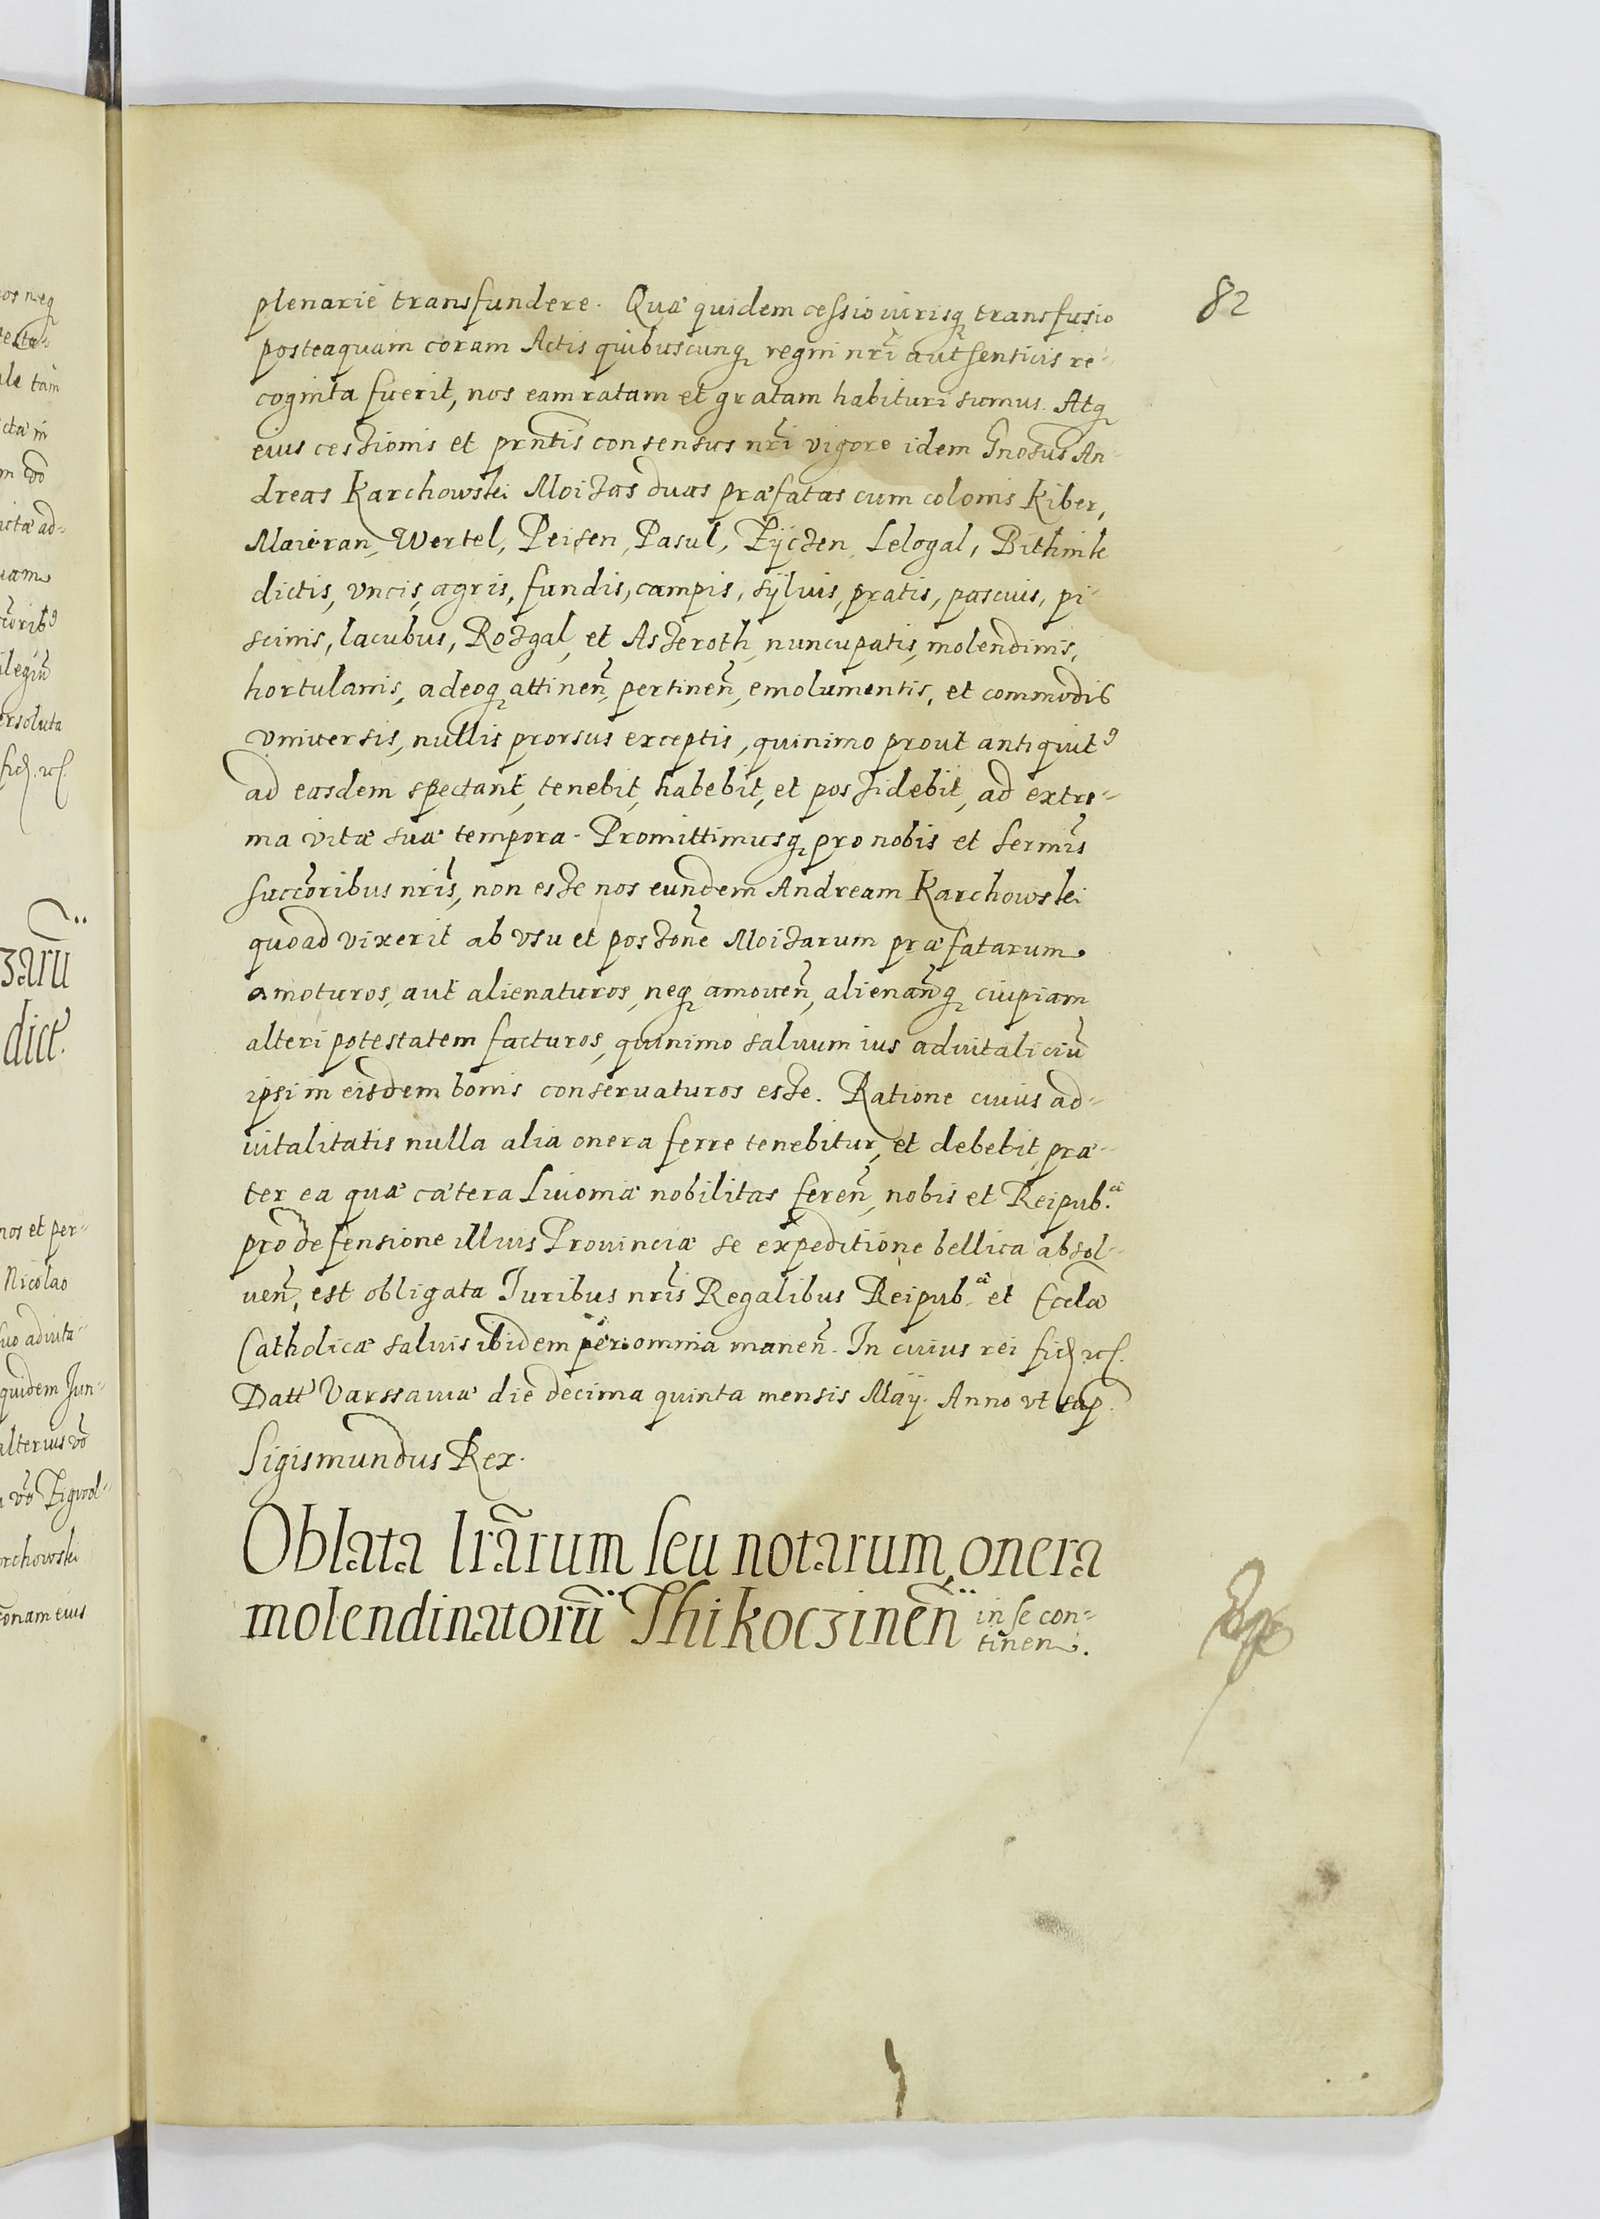 82
plenarie transfundere. Quæ quidem cessio iurisq transfusio
posteaquam coram Actis quibuscunq regni nr̃i autsenticis re-
cognita fuerit, nos eam ratam et gratam habituri sumus. Atq
eius cessionis et prñtis consensus nr̃i vigore idem Gnosus An-
dreas Karchowski Moizas duas præfatas cum colonis Kiber,
Maieran, Wertel, Peisen, Pasul, Lelogal, Bithink
dictis, vncis, agris, fundis, campis, sÿluis, pratis, pascuis, pi-
scinis, lacubus, Rozgal, et Aszeroth, nuncupatis, molendinis,
hortulanis, adeoq attineñ, pertineñ, emolumentis, et commodis
vniuersis, nullis prorsus exceptis, quinimo prout antiquit9
ad easdem spectant, tenebit, habebit, et possidebit, ad extre-
ma vitæ suæ tempora. Promittimusq pro nobis et Sermis̃
succõribus nris̃, non esse nos eundem Andream Karchowski
quoad vixerit ab vsu et possone᷃ Moizarum præfatarum
amoturos, aut alienaturos, neq amoueñ, alienañq cuipiam
alteri potestatem facturos, quinimo saluum ius aduitaliciũ
ipsi in eisdem bonis conseruaturos esse. Ratione cuius ad-
uitalitatis nulla alia onera ferre tenebitur, et debebit, præ-
ter ea quæ cætera Liuoniæ nobilitas fereñ, nobis et Reipub.cæ
pro defensione illius Prouinciæ se expeditione bellica absol-
ueñ, est obligata Juribus nris̃ Regalibus Reipub.cæ et Eccl̃æ
Catholicæ saluis ibidem per omnia maneñ. In cuius rei fid etc.
Datt Varssauiæ die decima quinta mensis Maÿ. Anno vt sup.
Sigismundus Rex.
Oblata lrãrum seu notarum, onera
molendinatorũ Thikoczineñ in se con-
tinen.